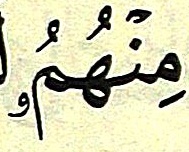 مِنْهُمُۥ